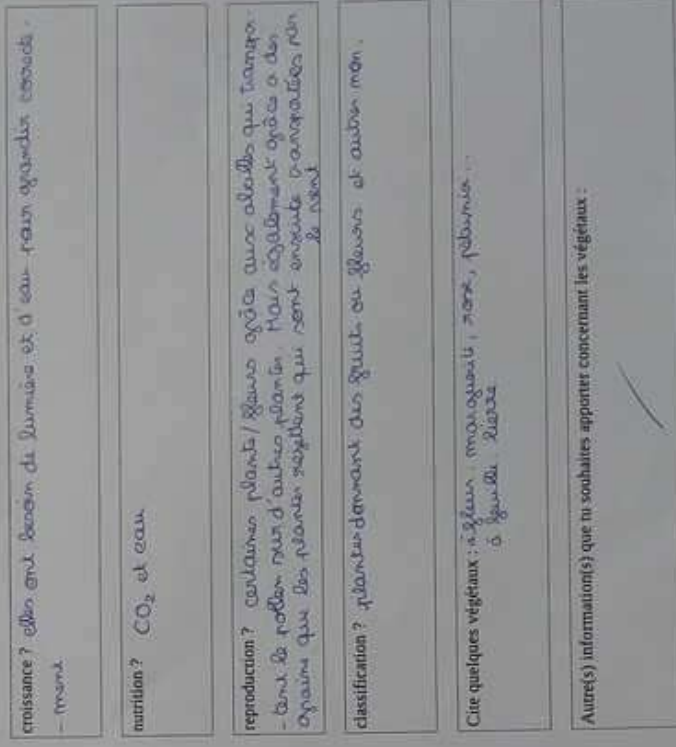 croissance ? elles ont besoin de lumière et d'eau pour grandir correcte-
- ment
nutrition ? CO₂ et eau
reproduction ? certaines plants/fleurs grâce aux abeilles qui transpor-
- tent le pollen sur d'autres plantes. Mais également grâce a des
grains que les plantes rejettent qui sont ensuite transportées par
le vent
classification ? plantes donnant des fruits ou fleurs et autres non.
Cite quelques végétaux : à fleur : marguerite, rose, pétunia...
à feuille : lierre
Autre(s) information(s) que tu souhaites apporter concernant les végétaux :